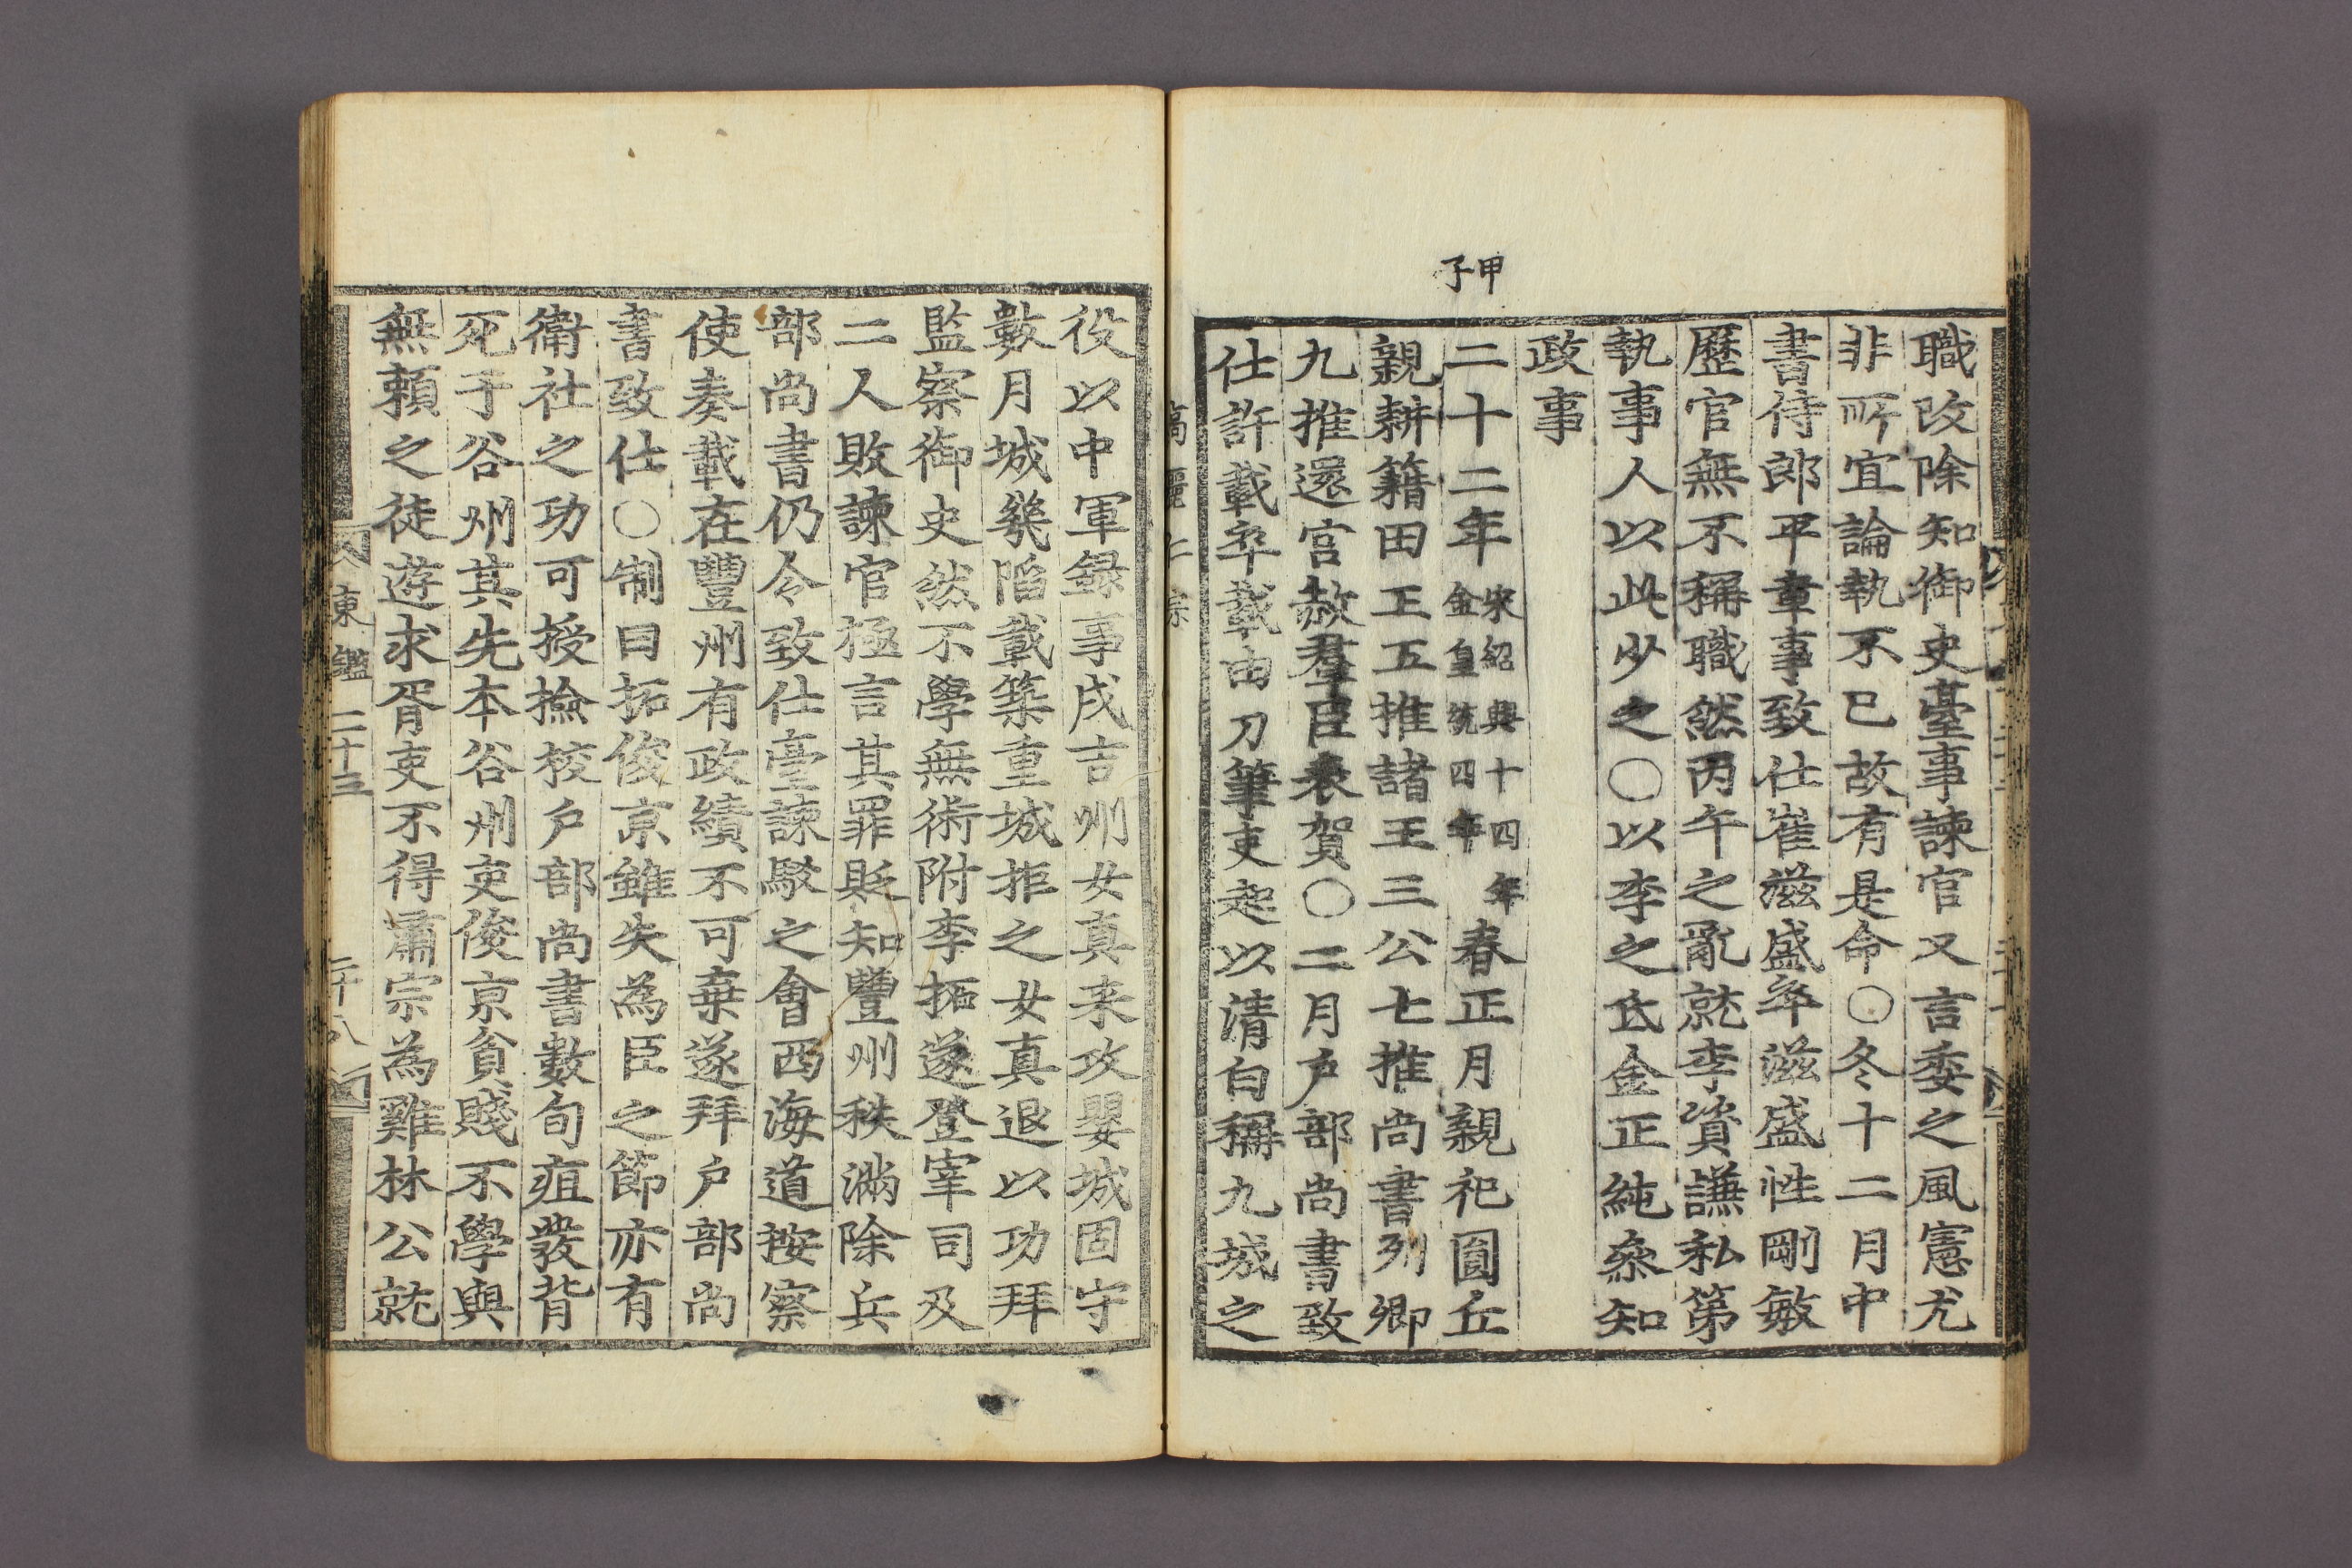 職改除知御史臺事諫官又言委之風憲尤
非所宜論執不已故有是命○冬十二月中
書侍郎平章事致仕崔滋盛卒滋盛性剛敏
歷官無不稱職然丙午之亂就李資謙私第
執事人以此少之○以李之氐金正純叅知
政事
甲子
二十二年宋紹興十四年金皇統四年春正月親祀圓丘
親耕籍田王五推諸王三公七推尚書列卿
九推還宮赦羣臣表賀○二月戶部尚書致
仕許載卒載由刀筆吏起以清白稱九城之
高麗仁宗
役以中軍録事戍吉州女真来攻嬰城固守
數月城幾陷載築重城拒之女真退以功拜
監察御史然不學無術附李拓遂登宰司及
二人敗諫官極言其罪貶知豐州秩滿除兵
部尚書仍令致仕臺諫駁之會西海道按察
使奏載在豐州有政績不可棄遂拜戶部尚
書致仕○制曰拓俊京雖失為臣之節亦有
衛社之功可授撿校戶部尚書數旬疽發背
死于谷州其先本谷州吏俊京貧賤不學與
無頼之徒遊求胥吏不得肅宗為雞林公就
東鑑 二十三 二十八